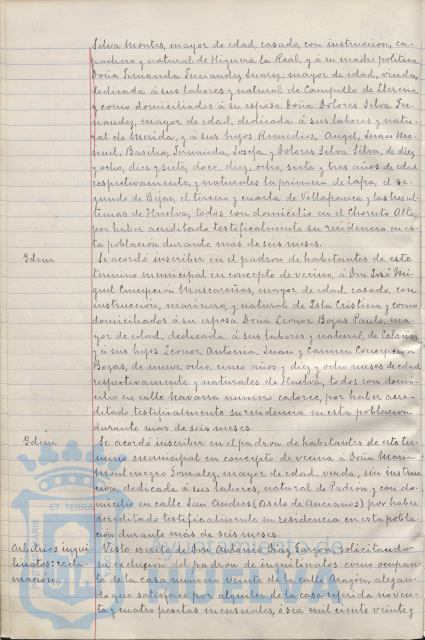 Silva Montes, mayor de edad, casado, con instruccion, ca-
pachero y natural de Higuera la Real, y á su madre politica
Doña Fernanda Fernandez Suarez, mayor de edad, viuda,
dedicada á sus labores y natural de Campillo de Llerena
y como domiciliados á su esposa Doña Dolores Silva Fer-
nandez, mayor de edad, dedicada á sus labores y natu-
ral de Merida, y á sus hijos Remedios, Angel, Juan Ma-
nuel, Basilia, Fernanda, Josefa y Dolores Silva Silva, de diez
y ocho, diez y siete, doce, diez, ocho, siete y tres años de edad
respectivamente, y naturales la primera de Zafra, el se-
gundo de Bejar, el tercero y cuarta de Villafranca y las tres ul-
timas de Huelva; todos con domicilio en el Chorrito Alto,
por haber acreditado testificalmente su residencia en es-
ta población durante mas de seis meses.
Idem Se acordó inscribir en el padron de habitantes de este
termino municipal en concepto de vecino, á Don José Mi-
guel Concepcion Mascareñas, mayor de edad, casado, con
instruccion, marinero, y natural de Isla Cristina y como
domiciliados á su esposa Doña Leonor Bozas Paulo, ma-
yor de edad, dedicada á sus labores y natural de Calañas
y á sus hijos Leonor, Antonia, Juan y Carmen Concepcion
Bozas, de nueve, ocho, cinco años y diez y ocho meses de edad
respectivamente y naturales de Huelva, todos con domi-
cilio en calle Navarra numero catorce, por haber acre-
ditado testificalmente su residencia en esta poblacion
durante mas de seis meses.
Idem Se acordó inscribir en el padron de habitantes de este ter-
mino municipal en concepto de vecina á Doña Maria
Montenegro Gonzalez, mayor de edad, viuda, sin instruc-
cion, dedicada á sus labores, natural de Padrón y con do-
micilio en calle San Andres (Asilo de Ancianos) por haber
acreditado testificalmente su residencia en esta pobla-
ción durante mas de seis meses.
Arbitrios inqui- Visto escrito de Don Antonio Diaz Garzón, solicitando
linatos: recla- la exclusion del padron de inquilinatos como ocupan-
macion. te de la casa numero veinte de la calle Aragón, alegan-
do que satisface por alquiler de la casa referida noven-
ta y cuatro pesetas mensuales, ó sea mil ciento veinte y